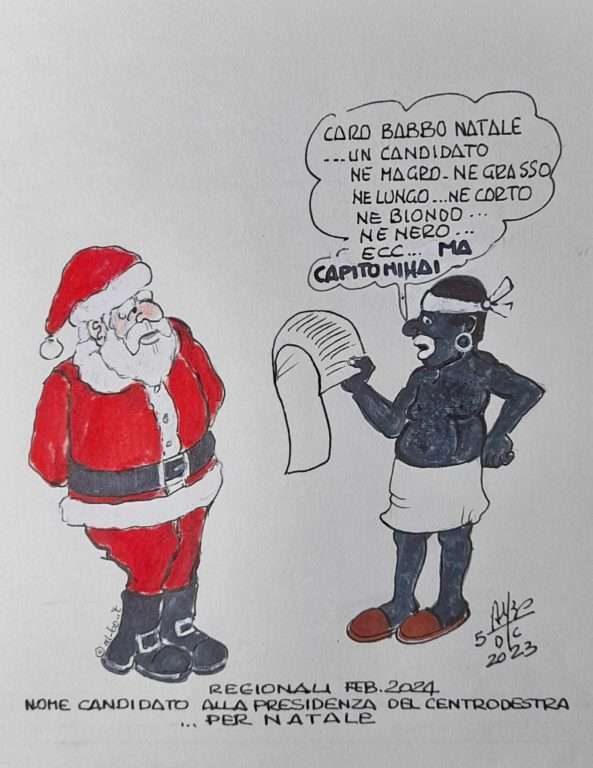 CARO BABBO NATALE
...UN CANDIDATO
NE MAGRO - NE GRASSO
NE LUNGO ... NE CORTO
NE BIONDO ...
NE NERO ...
ECC ... MA
CAPITO MI HAI
5
DIC
2023
REGIONALI FEB. 2024
NOME CANDIDATO ALLA PRESIDENZA DEL CENTRODESTRA
... PER NATALE